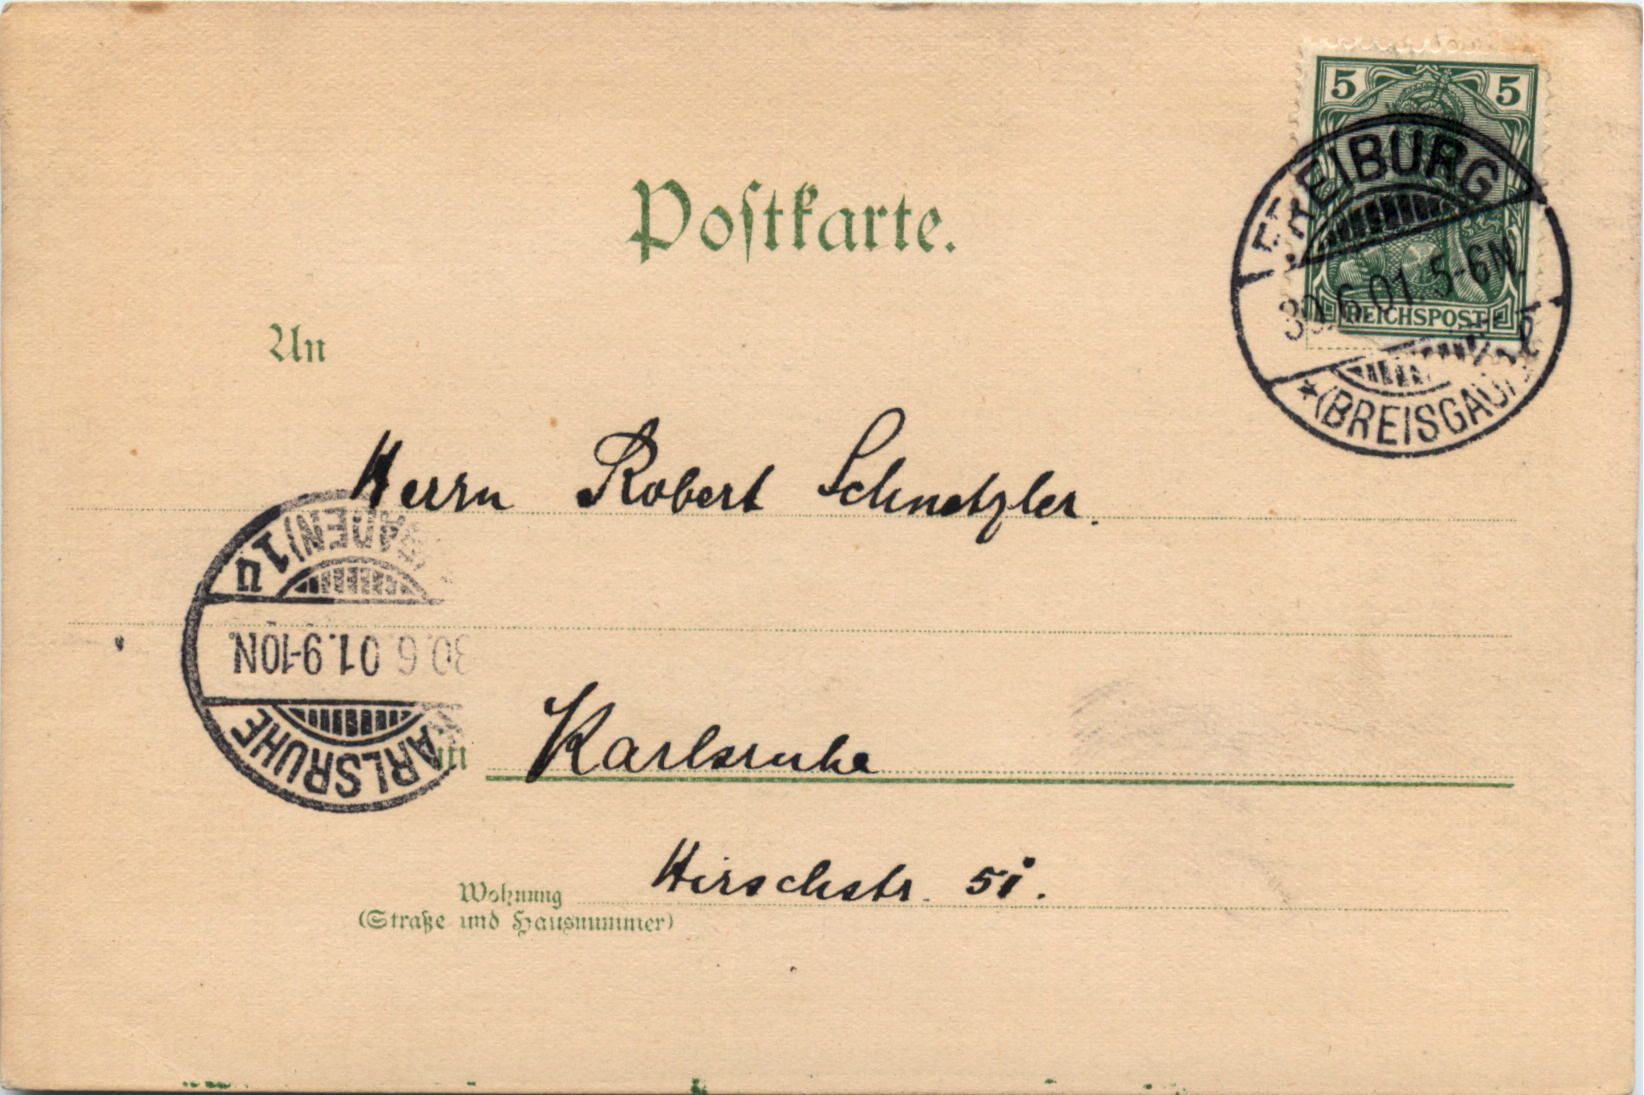 5 5
FREIBURG
30.6.01.5-6N.
REICHSPOST
*(BREISGAU)
Postkarte.
An
Herrn Robert Schnetzler.
(BADEN)
1U
30.6.01.9-10N.
KARLSRUHE
in Karlsruhe
Hirschstr. 51.
Wohnung
(Straße und Hausnummer)